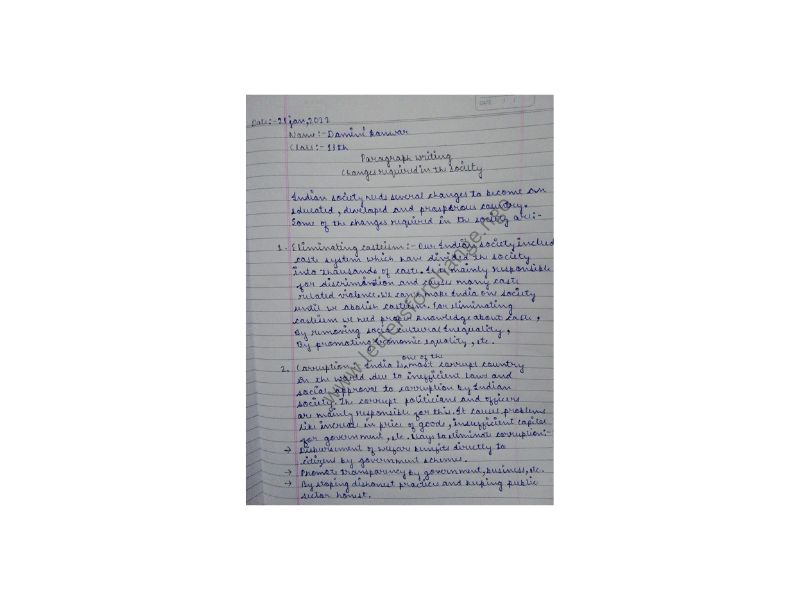 DATE / /
Date:-28 jan,2022
Name:- Damini Kanwar
Class:- 11th
Paragraph writing
Changes required in the society
Indian society needs several changes to become an
educated, developed and prosperous country.
Some of the changes required in the society are:-
1. Eliminating casteism:- Our Indian society include
caste system which have divided the society
into thousands of caste. It is mainly responsible
for discrimination and cause many caste
related violence. We can't make India one society
until we abolish casteism. For eliminating
casteism we need proper knowledge about caste,
By removing socio cultural Inequality,
By promoting economic equality, etc.
one of the
2. Corruption:- India is most corrupt country
In the world due to inefficient laws and
social approval to corruption by Indian
society. The corrupt politicians and officers
are mainly responsible for this. It cause problems
like increase in price of goods, insufficient capital
for government, etc. Ways to eliminate corruption:-
→ Disbursement of welfare benefits directly to
citizens by government schemes.
→ Promote transparency by government, business, etc.
→ By stoping dishonest practices and keeping public
sector honest.
www.lettersforchange.ngo